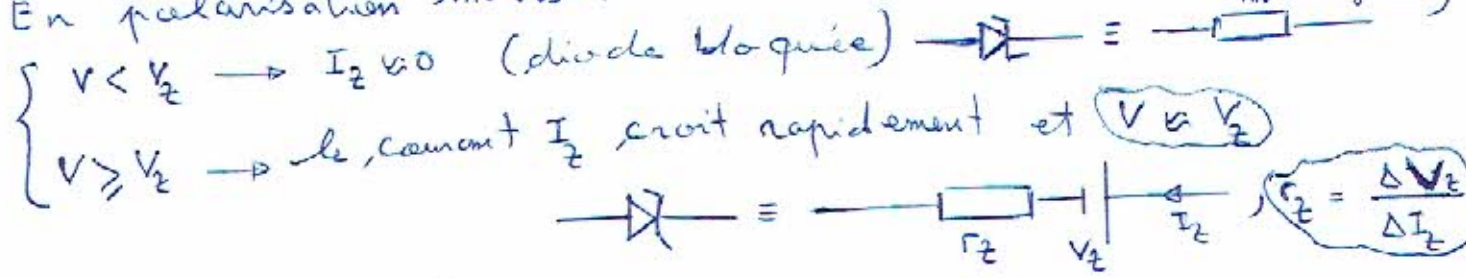 En polarisation
{ V < V_z → I_z ≈ 0 (diode bloquée) ≡
V ⩾ V_z → le courant I_z croit rapidement et V ≈ V_z
≡ r_z V_z I_z , r_z = ΔV_z / ΔI_z